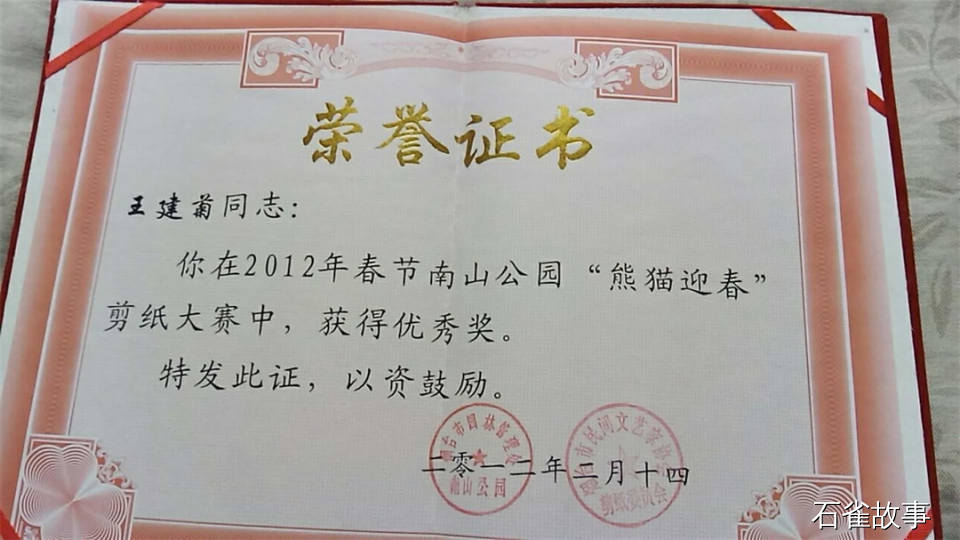 荣誉证书
王建菊同志:
你在2012年春节南山公园“熊猫迎春”
剪纸大赛中，获得优秀奖。
特发此证，以资鼓励。
烟台市园林管理处
南山公园
烟台市民间文艺家协会
剪纸委员会
二零一二年二月十四
石雀故事